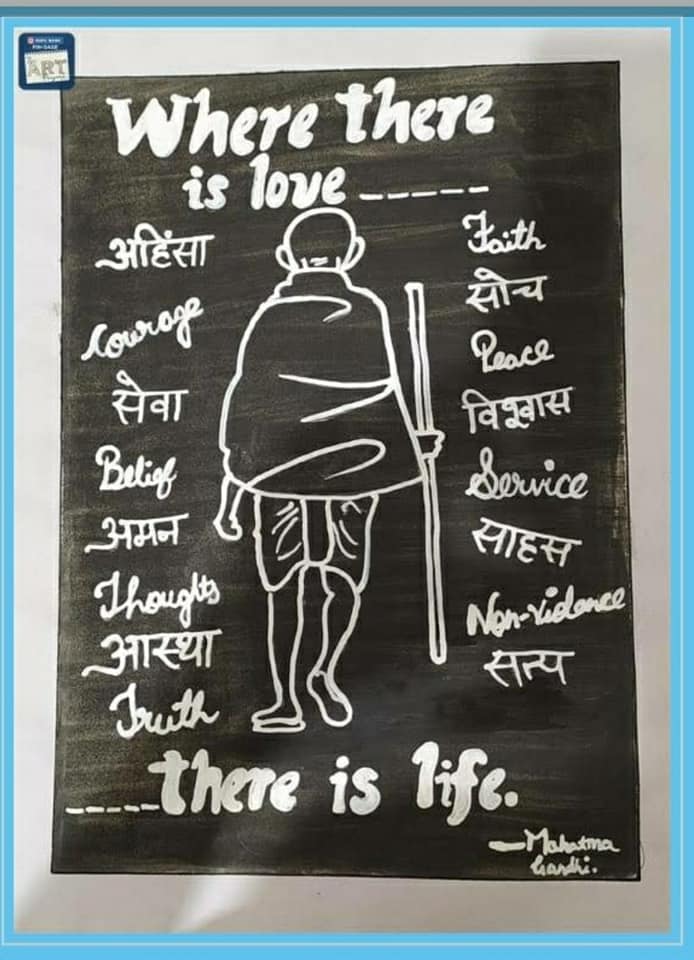 ART
Where there
is love -----
अहिंसा
Courage
सेवा
Belief
अमन
Thoughts
आस्था
Truth
Faith
सोच
Peace
विश्वास
Service
साहस
Non-violence
सत्य
-----there is life.
—Mahatma
Gandhi.